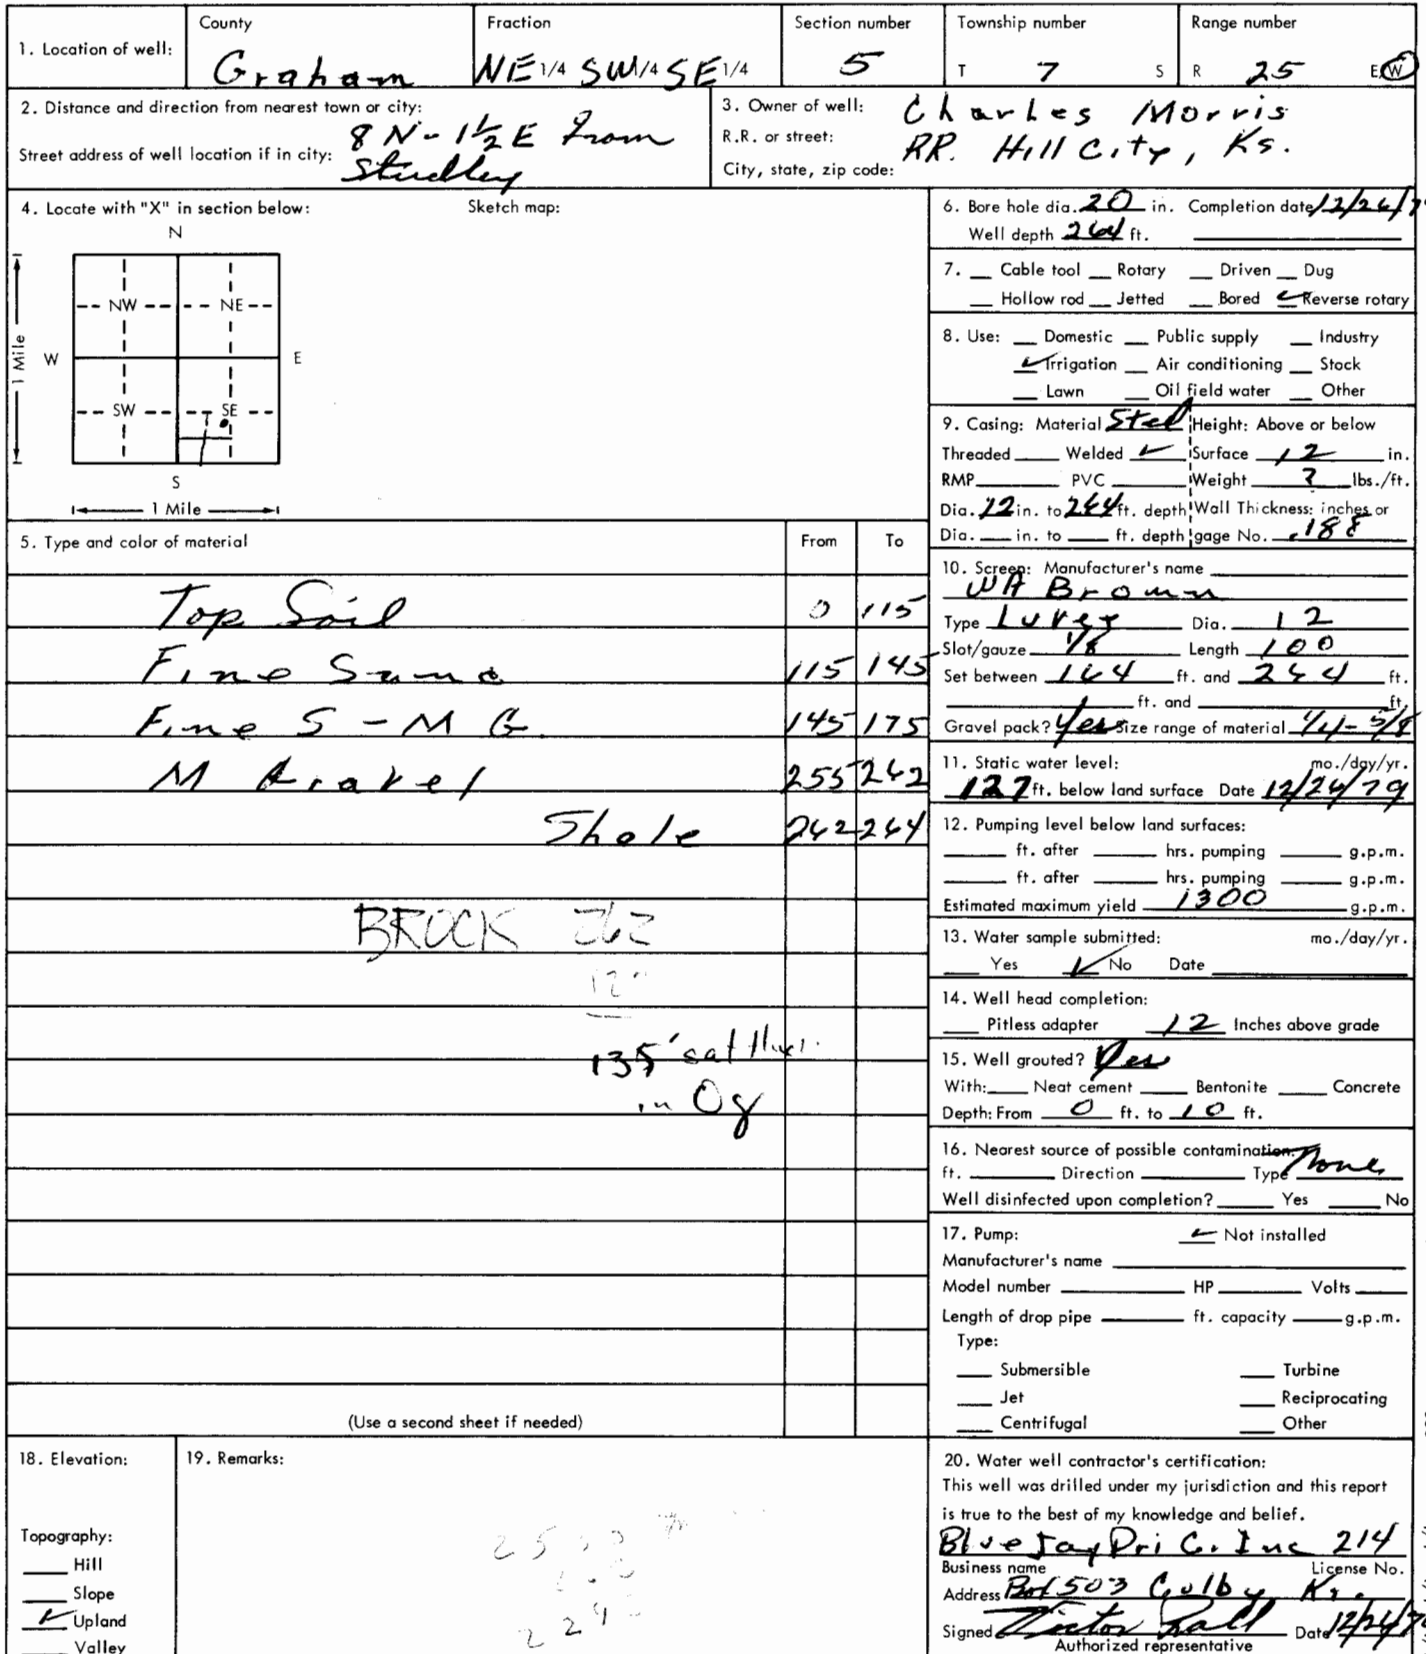 County Fraction Section number Township number Range number
1. Location of well: Graham NE 1/4 SW 1/4 SE 1/4 5 T 7 S R 25 E W
2. Distance and direction from nearest town or city: 8 N - 1 1/2 E From
Street address of well location if in city: Studley
3. Owner of well: Charles Morris
R.R. or street: RR. Hill City, Ks.
City, state, zip code:
4. Locate with "X" in section below: Sketch map:
N
NW NE
W E
1 Mile
SW SE
S
1 Mile
5. Type and color of material From To
Top Soil 0 115
Fine Sand 115 145
Fine S - M G. 145 175
M Gravel 255 262
Shale 262 264
BROCK 262
127
135' sat thick.
in Og
(Use a second sheet if needed)
6. Bore hole dia. 20 in. Completion date 12/26/79
Well depth 264 ft.
7. Cable tool Rotary Driven Dug
Hollow rod Jetted Bored ✓ Reverse rotary
8. Use: Domestic Public supply Industry
✓ Irrigation Air conditioning Stock
Lawn Oil field water Other
9. Casing: Material Steel Height: Above or below
Threaded Welded ✓ Surface 12 in.
RMP PVC Weight ? lbs./ft.
Dia. 12 in. to 264 ft. depth Wall Thickness: inches or
Dia. in. to ft. depth gage No. .188
10. Screen: Manufacturer's name
WA Brown
Type Luver Dia. 12
Slot/gauze 1/8 Length 100
Set between 164 ft. and 264 ft.
ft. and ft.
Gravel pack? Yes Size range of material 1/4 - 5/8
11. Static water level: mo./day/yr.
127 ft. below land surface Date 12/26/79
12. Pumping level below land surfaces:
ft. after hrs. pumping g.p.m.
ft. after hrs. pumping g.p.m.
Estimated maximum yield 1300 g.p.m.
13. Water sample submitted: mo./day/yr.
Yes ✓ No Date
14. Well head completion:
Pitless adapter 12 Inches above grade
15. Well grouted? Yes
With: Neat cement Bentonite Concrete
Depth: From 0 ft. to 10 ft.
16. Nearest source of possible contamination:
ft. Direction Type None
Well disinfected upon completion? Yes No
17. Pump: ✓ Not installed
Manufacturer's name
Model number HP Volts
Length of drop pipe ft. capacity g.p.m.
Type:
Submersible Turbine
Jet Reciprocating
Centrifugal Other
18. Elevation:
Topography:
Hill
Slope
✓ Upland
Valley
19. Remarks:
20. Water well contractor's certification:
This well was drilled under my jurisdiction and this report
is true to the best of my knowledge and belief.
Blue Jay Dri C. Inc 214
Business name License No.
Address Box 503 Colby Ks.
Signed Victor Rall Date 12/26/79
Authorized representative